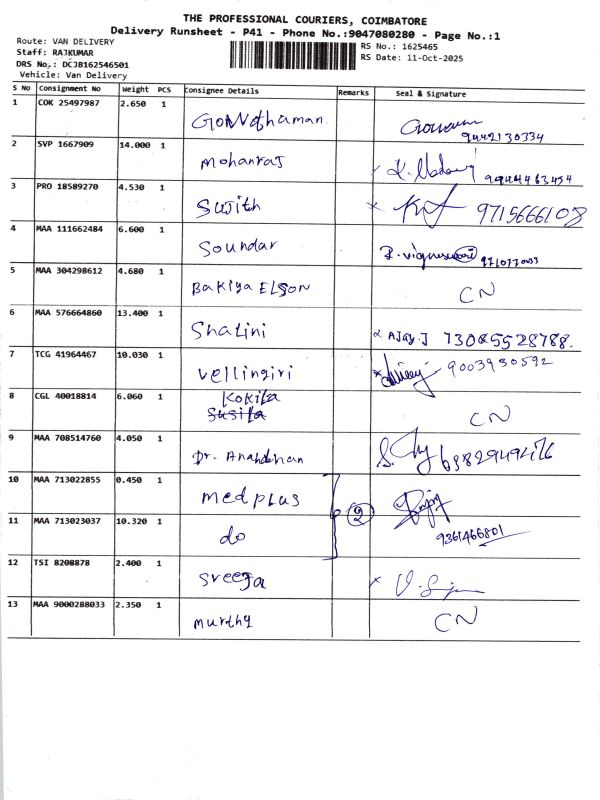 THE PROFESSIONAL COURIERS, COIMBATORE
Delivery Runsheet - P41 - Phone No.:9047080280 - Page No.:1
Route: VAN DELIVERY
Staff: RAJKUMAR
DRS No.: DCJB162546501
Vehicle: Van Delivery
RS No.: 1625465
RS Date: 11-Oct-2025
S No Consignment No Weight PCS Consignee Details Remarks Seal & Signature
1 COK 25497987 2.650 1 Gowthaman 9442130334
2 SVP 1667909 14.000 1 Mohanraj 9944463454
3 PRO 18589270 4.530 1 Sujith 9715666108
4 MAA 111662484 6.600 1 Soundar
5 MAA 304298612 4.680 1 Bakiya ELSON CN
6 MAA 576664860 13.400 1 Shalini Ajay.J 73085528788.
7 TCG 41964467 10.030 1 Vellingiri 9003930592
8 CGL 40018814 6.060 1 Kokila CN
Susila
9 MAA 708514760 4.050 1 Dr. Anandhan
10 MAA 713022855 0.450 1 Medplus
2
11 MAA 713023037 10.320 1 do 9361466801
12 TSI 8208878 2.400 1 Sreeja
13 MAA 9000288033 2.350 1 Murthy CN